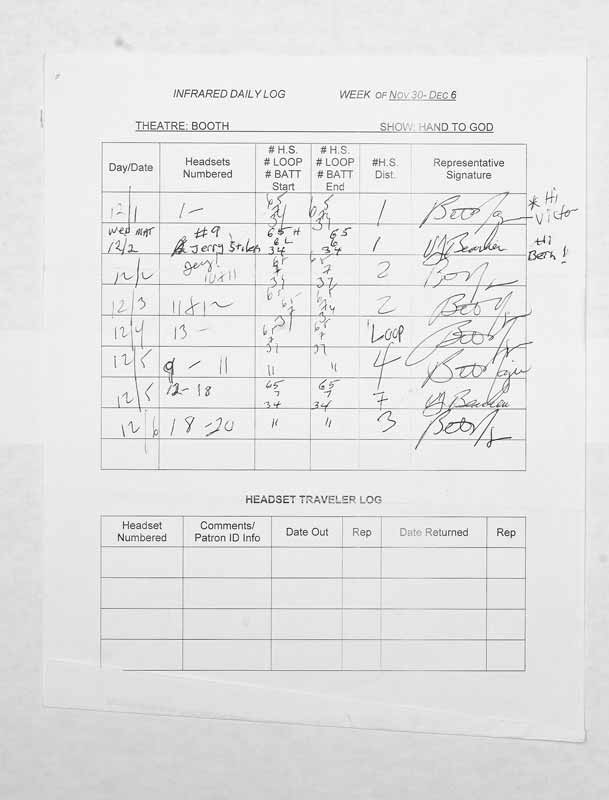 INFRARED DAILY LOG WEEK OF NOV 30- DEC 6
THEATRE: BOOTH SHOW: HAND TO GOD
Day/Date Headsets Numbered # H.S. # LOOP # BATT Start # H.S. # LOOP # BATT End #H.S. Dist. Representative Signature
12/1 1- 65 7 34 65 7 34 1
* Hi Victor
WED MAT 12/2 #9, Jerry 65 H 6 L 34 65 6 34 1
Hi Beth!
12/2 10 & 11 65 7 34 65 7 34 2
12/3 11 & 12 65 65 34 2
12/4 13 - 65 7 65 7 Loop
12/5 9 - 11 " " 4
12/5 12-18 65 7 34 65 7 34 7
12/6 18-20 " " 3
HEADSET TRAVELER LOG
Headset Numbered Comments/ Patron ID Info Date Out Rep Date Returned Rep